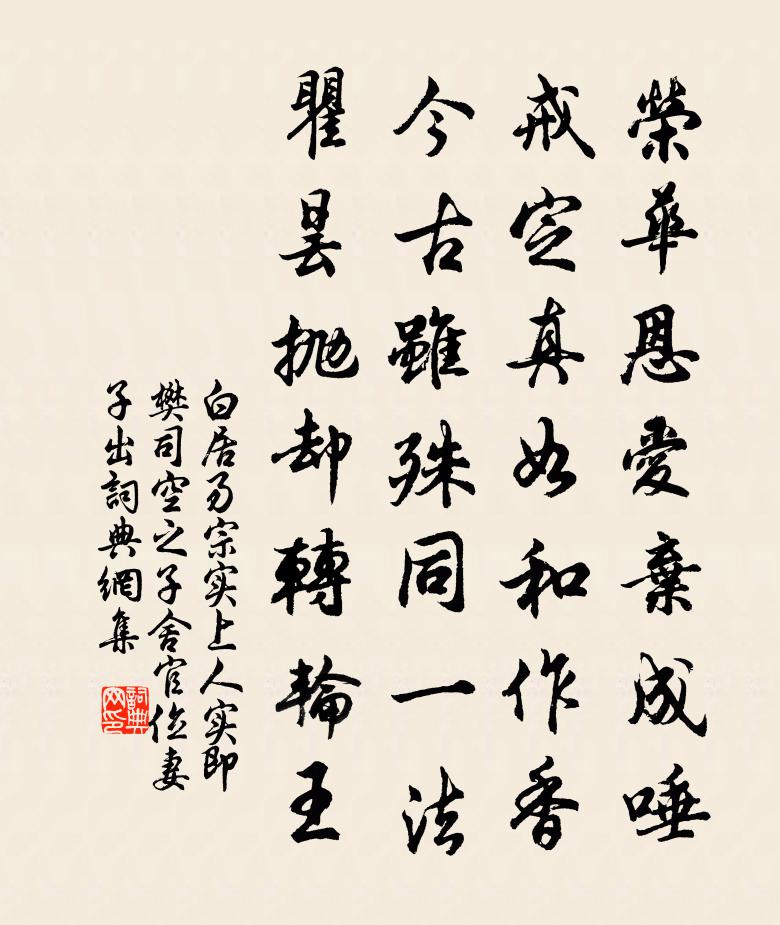 榮華恩愛棄成唾
戒定真如和作香
今古雖殊同一法
瞿曇拋却轉輪王
白居易宗实上人实即
樊司空之子舍官位妻
子出詞典網集
詞典网印